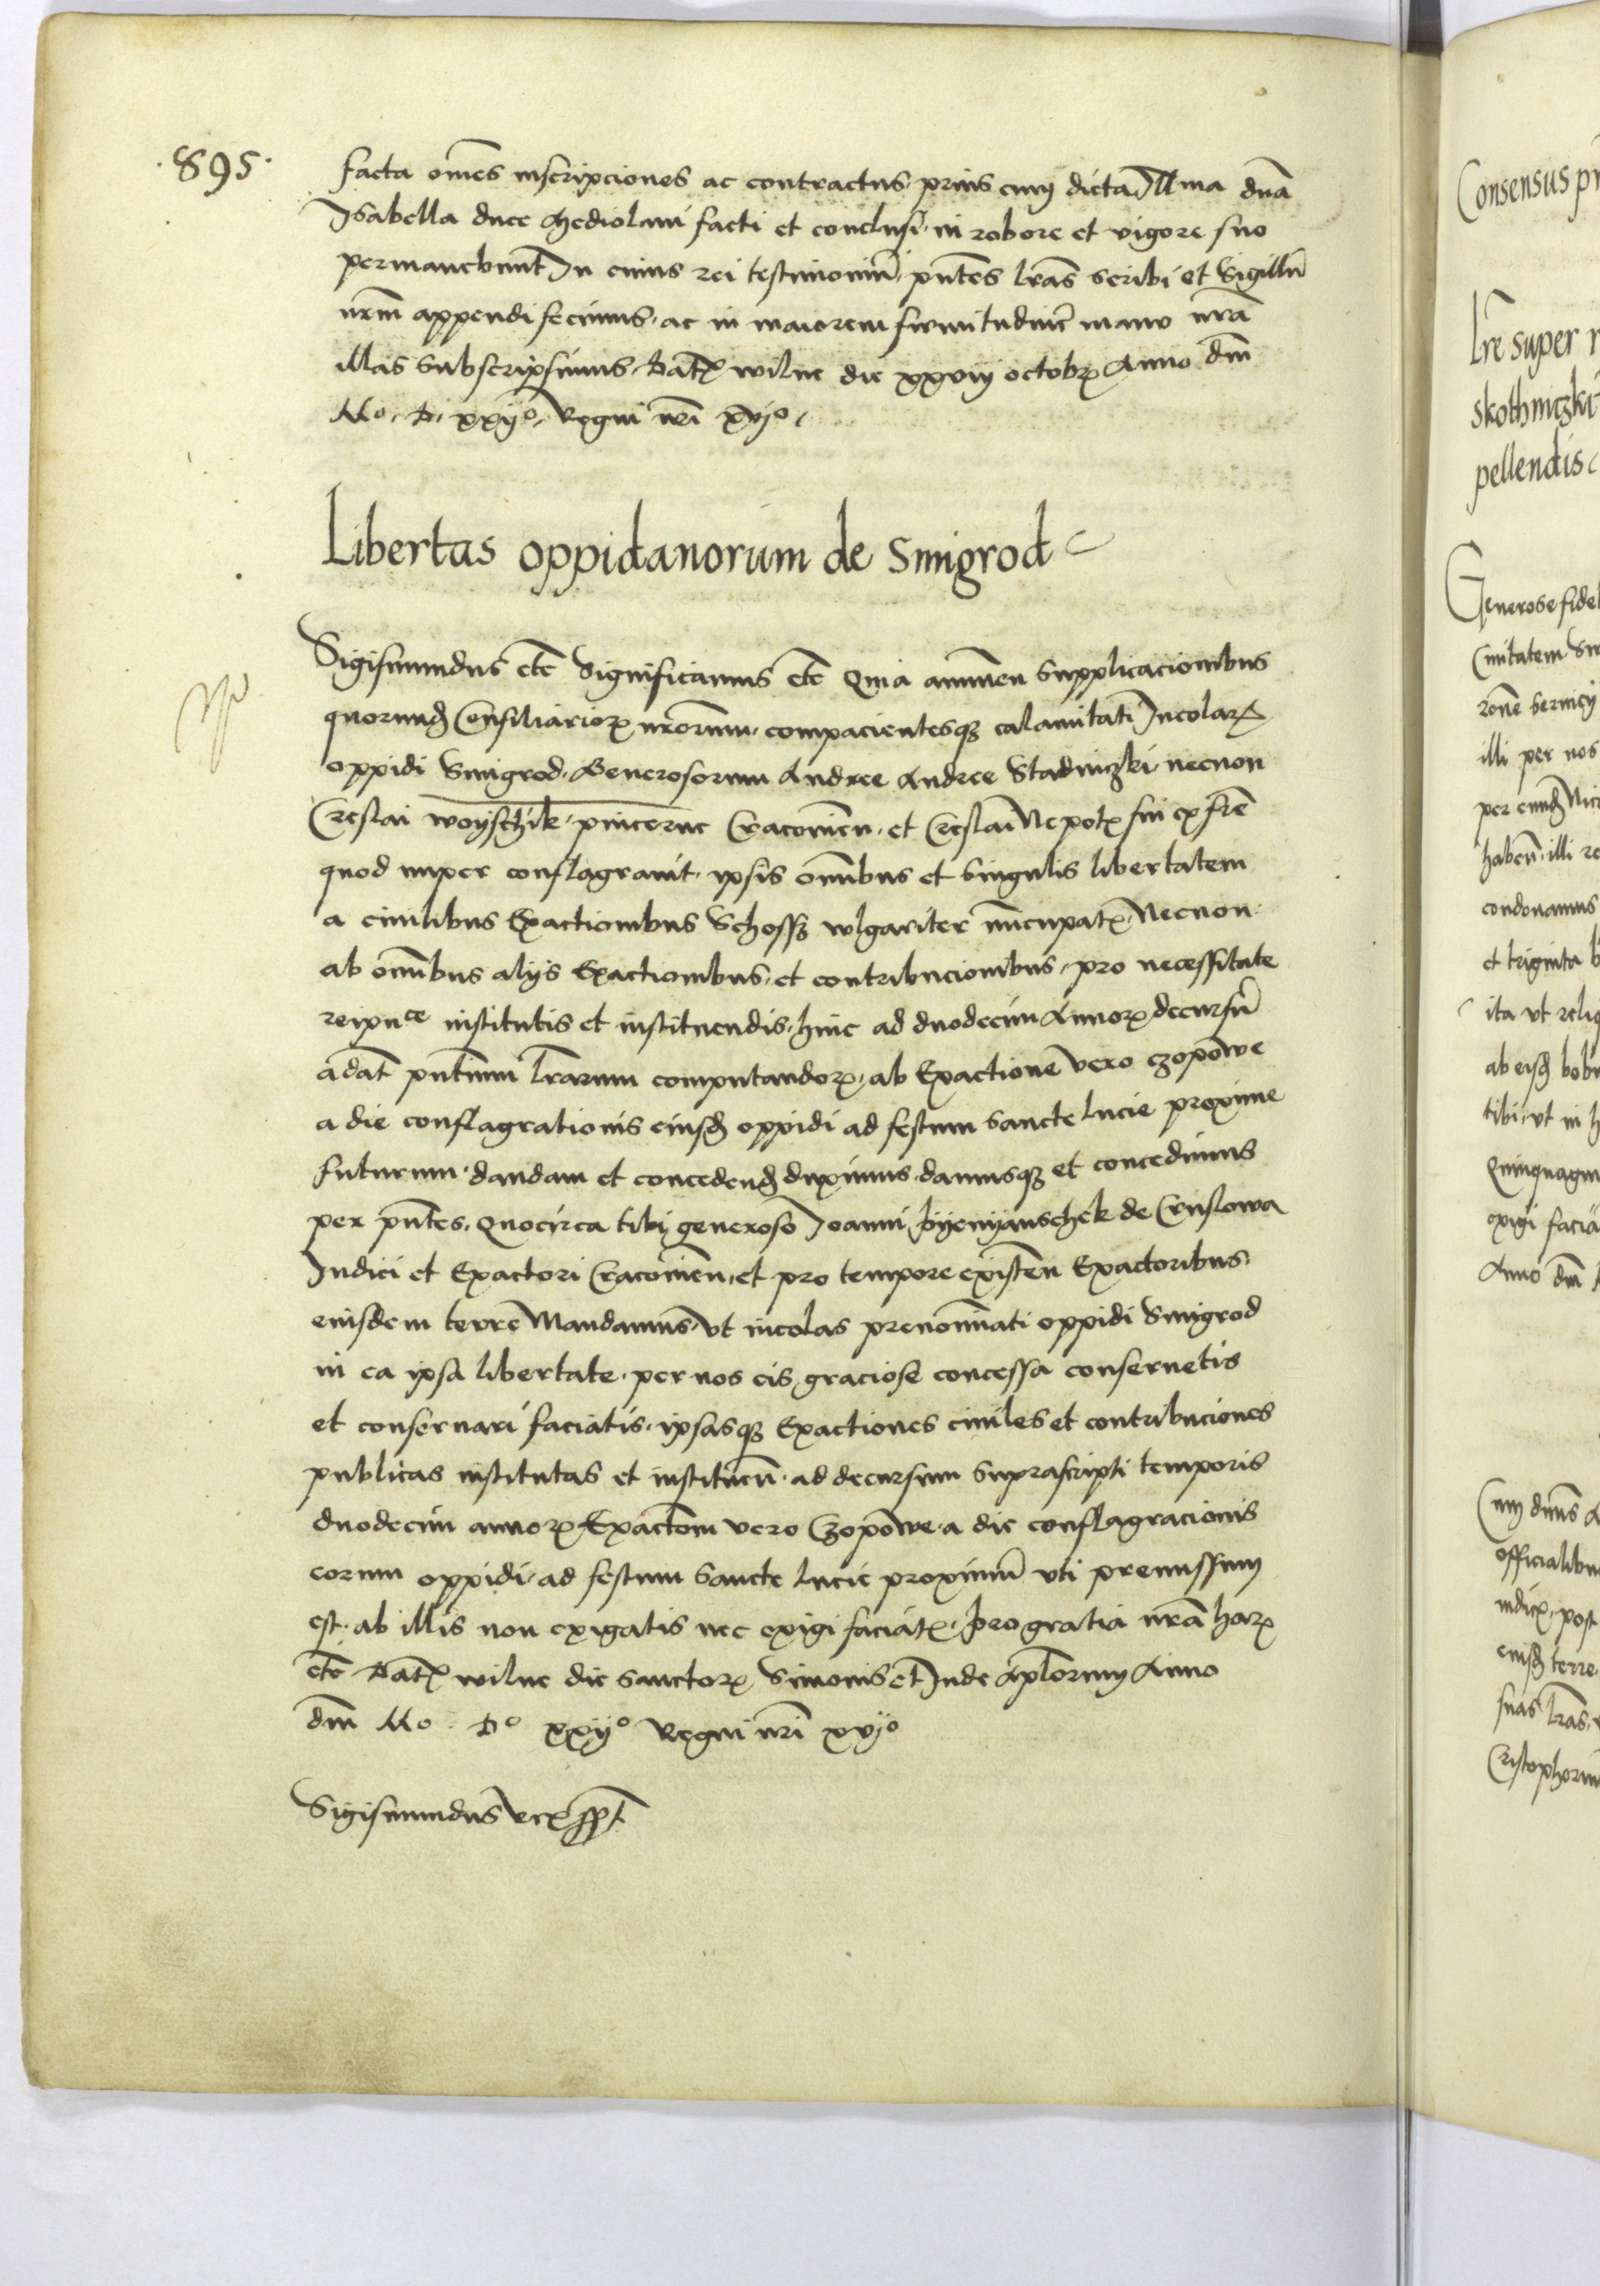 .895.
facta om̄es inscripciones ac contractus prius cum dicta Ill ma dn̄a
Isabella duce Mediolani facti et conclusi in robore et vigore suo
permanebunt In cuius rei testimoniū pn̄tes lr̄as scribi et Sigillū
nrm̄ appendi fecimus. ac in maiorem firmitudinē manu nr̄a
illas Subscripsimus. Datꝭ wilne die xxviij octobrꝭ Anno dn̄i
Mo. D. xxijo. Regni nr̄i xvjo.
Libertas oppidanorum de Smigrod
Sigismundus etc̄ Significamus etc̄ Quia annuen̄ Supplicacionibus
quorund̄ Consiliarioꝝ nr̄orum. compacientesqꝫ calamitati Incolaꝝ
oppidi Smigrod. Generosorum Andree Andree Stadniczki necnon
Creslai woyschik pincerne Cracovien̄. et Creslai Nepotꝭ sui ex fr̄e
quod nuper conflagravit. ipsis om̄ibus et singulis libertatem
a civilibus Exactionibus Schoss wlgariter nūcupatꝭ Necnon
ab om̄ibus alijs Exactionibus. et contribucionibus. pro necessitate
reipu ce institutis et instituendis. hinc ad duodecim Annoꝝ decursū
a dat̄ pn̄tium lr̄arum computandoꝝ. ab Exactione vero czopowe
a die conflagrationis eiusd̄ oppidi ad festum Sancte Lucie proxime
futurum. dandam et concedend̄ duximus. damusqꝫ et concedimus
per pn̄tes. Quocirca tibi generoso Joanni Pyenyanschek de Cruslowa
Iudici et Exactori Cracovien̄. et pro tempore existen̄ Exactoribus.
eiusdem terre Mandamus. vt incolas prenom̄inati oppidi Smigrod
in ea ipsa libertate. per nos eis graciose concessa conservetis
et conservari faciatis. ipsasqꝫ Exactiones civiles et contribuciones
publicas institutas et instituen̄. ad decursum suprascripti temporis
duodecim annoꝝ Exactōm vero Czopowe. a die conflagracionis
eorum oppidi. ad festum Sancte Lucie proximū vti premissum
est. ab illis non exigatis nec exigi faciatꝭ. pro gratia nr̄a haꝝ
etc̄ Datꝭ wilne die Sanctoꝝ Simonis et Iude Aplorum Anno
dn̄i Mo. Do xxijo Regni nr̄i xvjo
Sigismundus Rex sspt
Consensus
Lr̄e super
skothniczki
pellendis
Generose
illi per nos
haben̄. illi
condonamus
et triginta
ita vt
tibi. vt in
exigi
Anno dn̄i
Cum
post
suas lr̄as